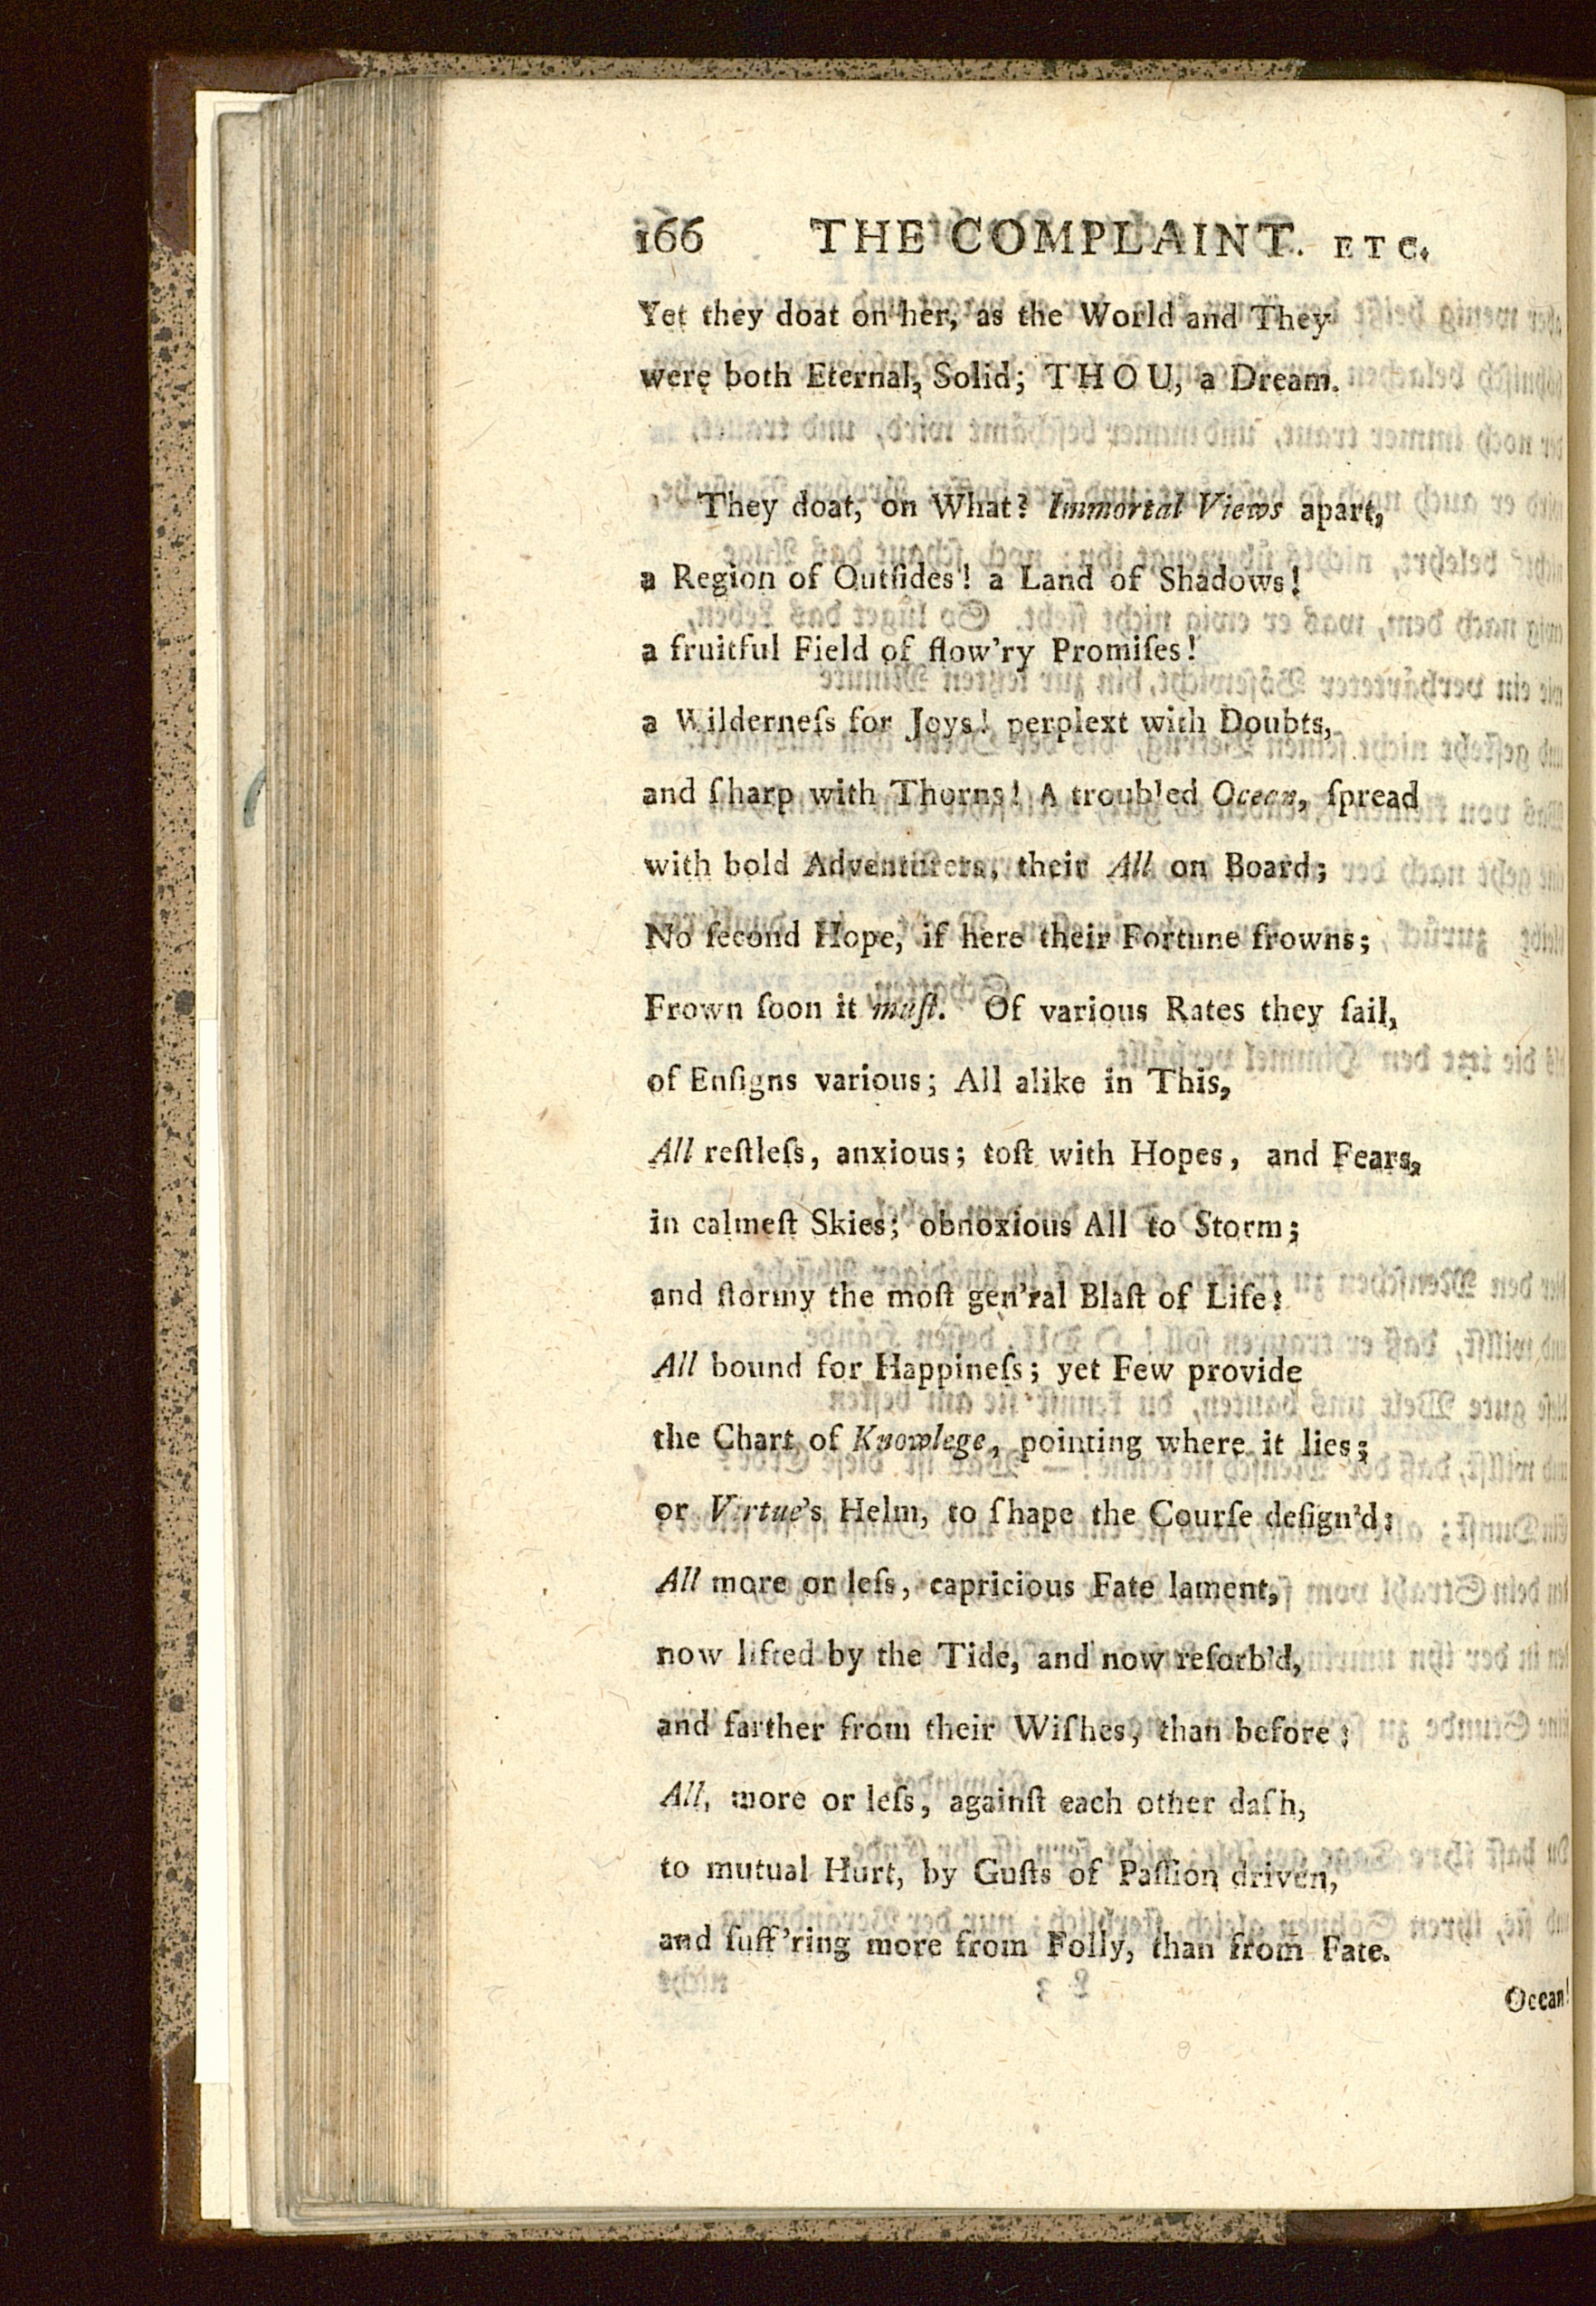 166 THE COMPLAINT. ETC.
Yet they doat on her, as the World and They
were both Eternal, Solid; THOU, a Dream.
They doat, on What? Immortal Views apart,
a Region of Outſides! a Land of Shadows!
a fruitful Field of flow'ry Promiſes!
a Wilderneſs for Joys! perplext with Doubts,
and ſharp with Thorns! A troubled Ocean, ſpread
with bold Adventurers, their All on Board;
No ſecond Hope, if here their Fortune frowns;
Frown ſoon it muſt. Of various Rates they ſail,
of Enſigns various; All alike in This,
All reſtleſs, anxious; toſt with Hopes, and Fears,
in calmeſt Skies; obnoxious All to Storm;
and ſtormy the moſt gen'ral Blaſt of Life:
All bound for Happineſs; yet Few provide
the Chart of Knowlege, pointing where it lies;
or Virtue's Helm, to ſhape the Courſe deſign'd:
All more or leſs, capricious Fate lament,
now lifted by the Tide, and now reſorb'd,
and farther from their Wiſhes, than before:
All, more or leſs, againſt each other daſh,
to mutual Hurt, by Guſts of Paſſion driven,
and ſuff'ring more from Folly, than from Fate.
Ocean!